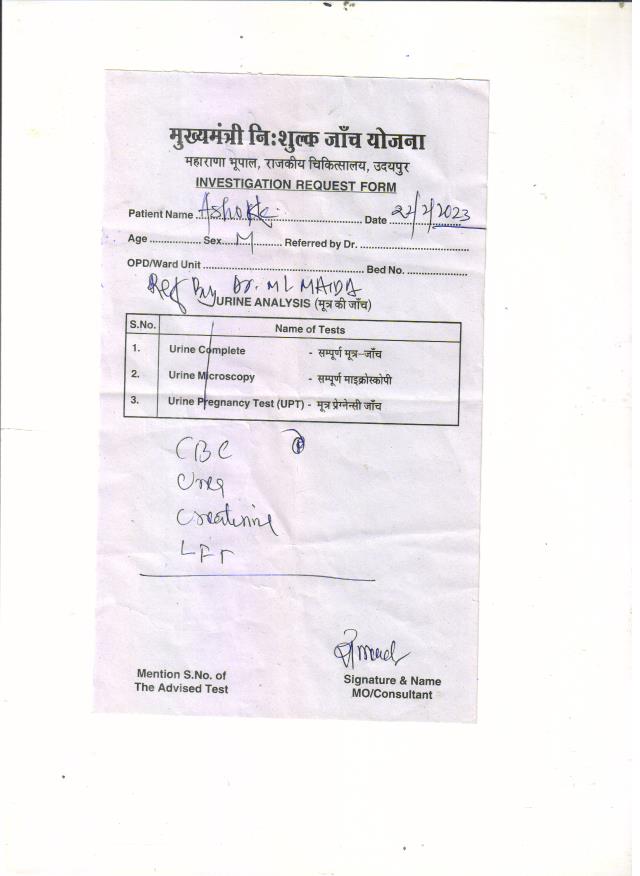 मुख्यमंत्री निःशुल्क जाँच योजना
महाराणा भूपाल, राजकीय चिकित्सालय, उदयपुर
INVESTIGATION REQUEST FORM
Patient Name Ashok Date 22/2/2023
Age .................. Sex M Referred by Dr. ..................
OPD/Ward Unit .................. Bed No. ..................
Ref By Dr. ML MAIDA
URINE ANALYSIS (मूत्र की जाँच)
S.No. Name of Tests
1. Urine Complete - सम्पूर्ण मूत्र-जाँच
2. Urine Microscopy - सम्पूर्ण माइक्रोस्कोपी
3. Urine Pregnancy Test (UPT) - मूत्र प्रेग्नेन्सी जाँच
CBC
Urea
Creatinine
LFT
Mention S.No. of
The Advised Test
Signature & Name
MO/Consultant